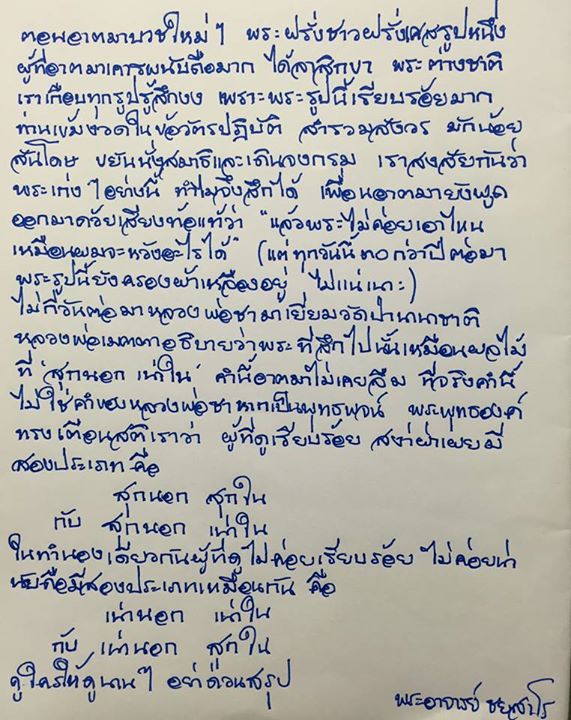 ตอนอาตมาบวชใหม่ๆ พระฝรั่งชาวฝรั่งเศสรูปหนึ่ง
ผู้ที่อาตมาเคารพนับถือมาก ได้ลาสิกขา พระต่างชาติ
เราเกือบทุกรูปรู้สึกงง เพราะพระรูปนี้เรียบร้อยมาก
ท่านเข้มงวดในข้อวัตรปฏิบัติ สำรวมสังวร มักน้อย
สันโดษ ขยันนั่งสมาธิและเดินจงกรม เราสงสัยกันว่า
พระเก่งๆอย่างนี้ ทำไมจึงสึกได้ เพื่อนอาตมายังพูด
ออกมาด้วยเสียงท้อแท้ว่า "แล้วพระไม่ค่อยเอาไหน
เหมือนผมจะหวังอะไรได้" (แต่ทุกวันนี้ ๓๐ กว่าปีต่อมา
พระรูปนี้ยังครองผ้าเหลืองอยู่ ไม่แน่เนาะ)
ไม่กี่วันต่อมาหลวงพ่อชามาเยี่ยมวัดป่านานาชาติ
หลวงพ่อเมตตาอธิบายว่าพระที่สึกไปนั้นเหมือนผลไม้
ที่ 'สุกนอก เน่าใน' คำนี้อาตมาไม่เคยลืม ที่จริงคำนี้
ไม่ใช่คำของหลวงพ่อชาหากเป็นพุทธพจน์ พระพุทธองค์
ทรงเตือนสติเราว่า ผู้ที่ดูเรียบร้อย สง่าผ่าเผยมี
สองประเภท คือ
สุกนอก สุกใน
กับ สุกนอก เน่าใน
ในทำนองเดียวกันผู้ที่ดูไม่ค่อยเรียบร้อย ไม่ค่อยน่า
นับถือมีสองประเภทเหมือนกัน คือ
เน่านอก เน่าใน
กับ เน่านอก สุกใน
ดูใครให้ดูนานๆ อย่าด่วนสรุป
พระอาจารย์ ชยสาโร